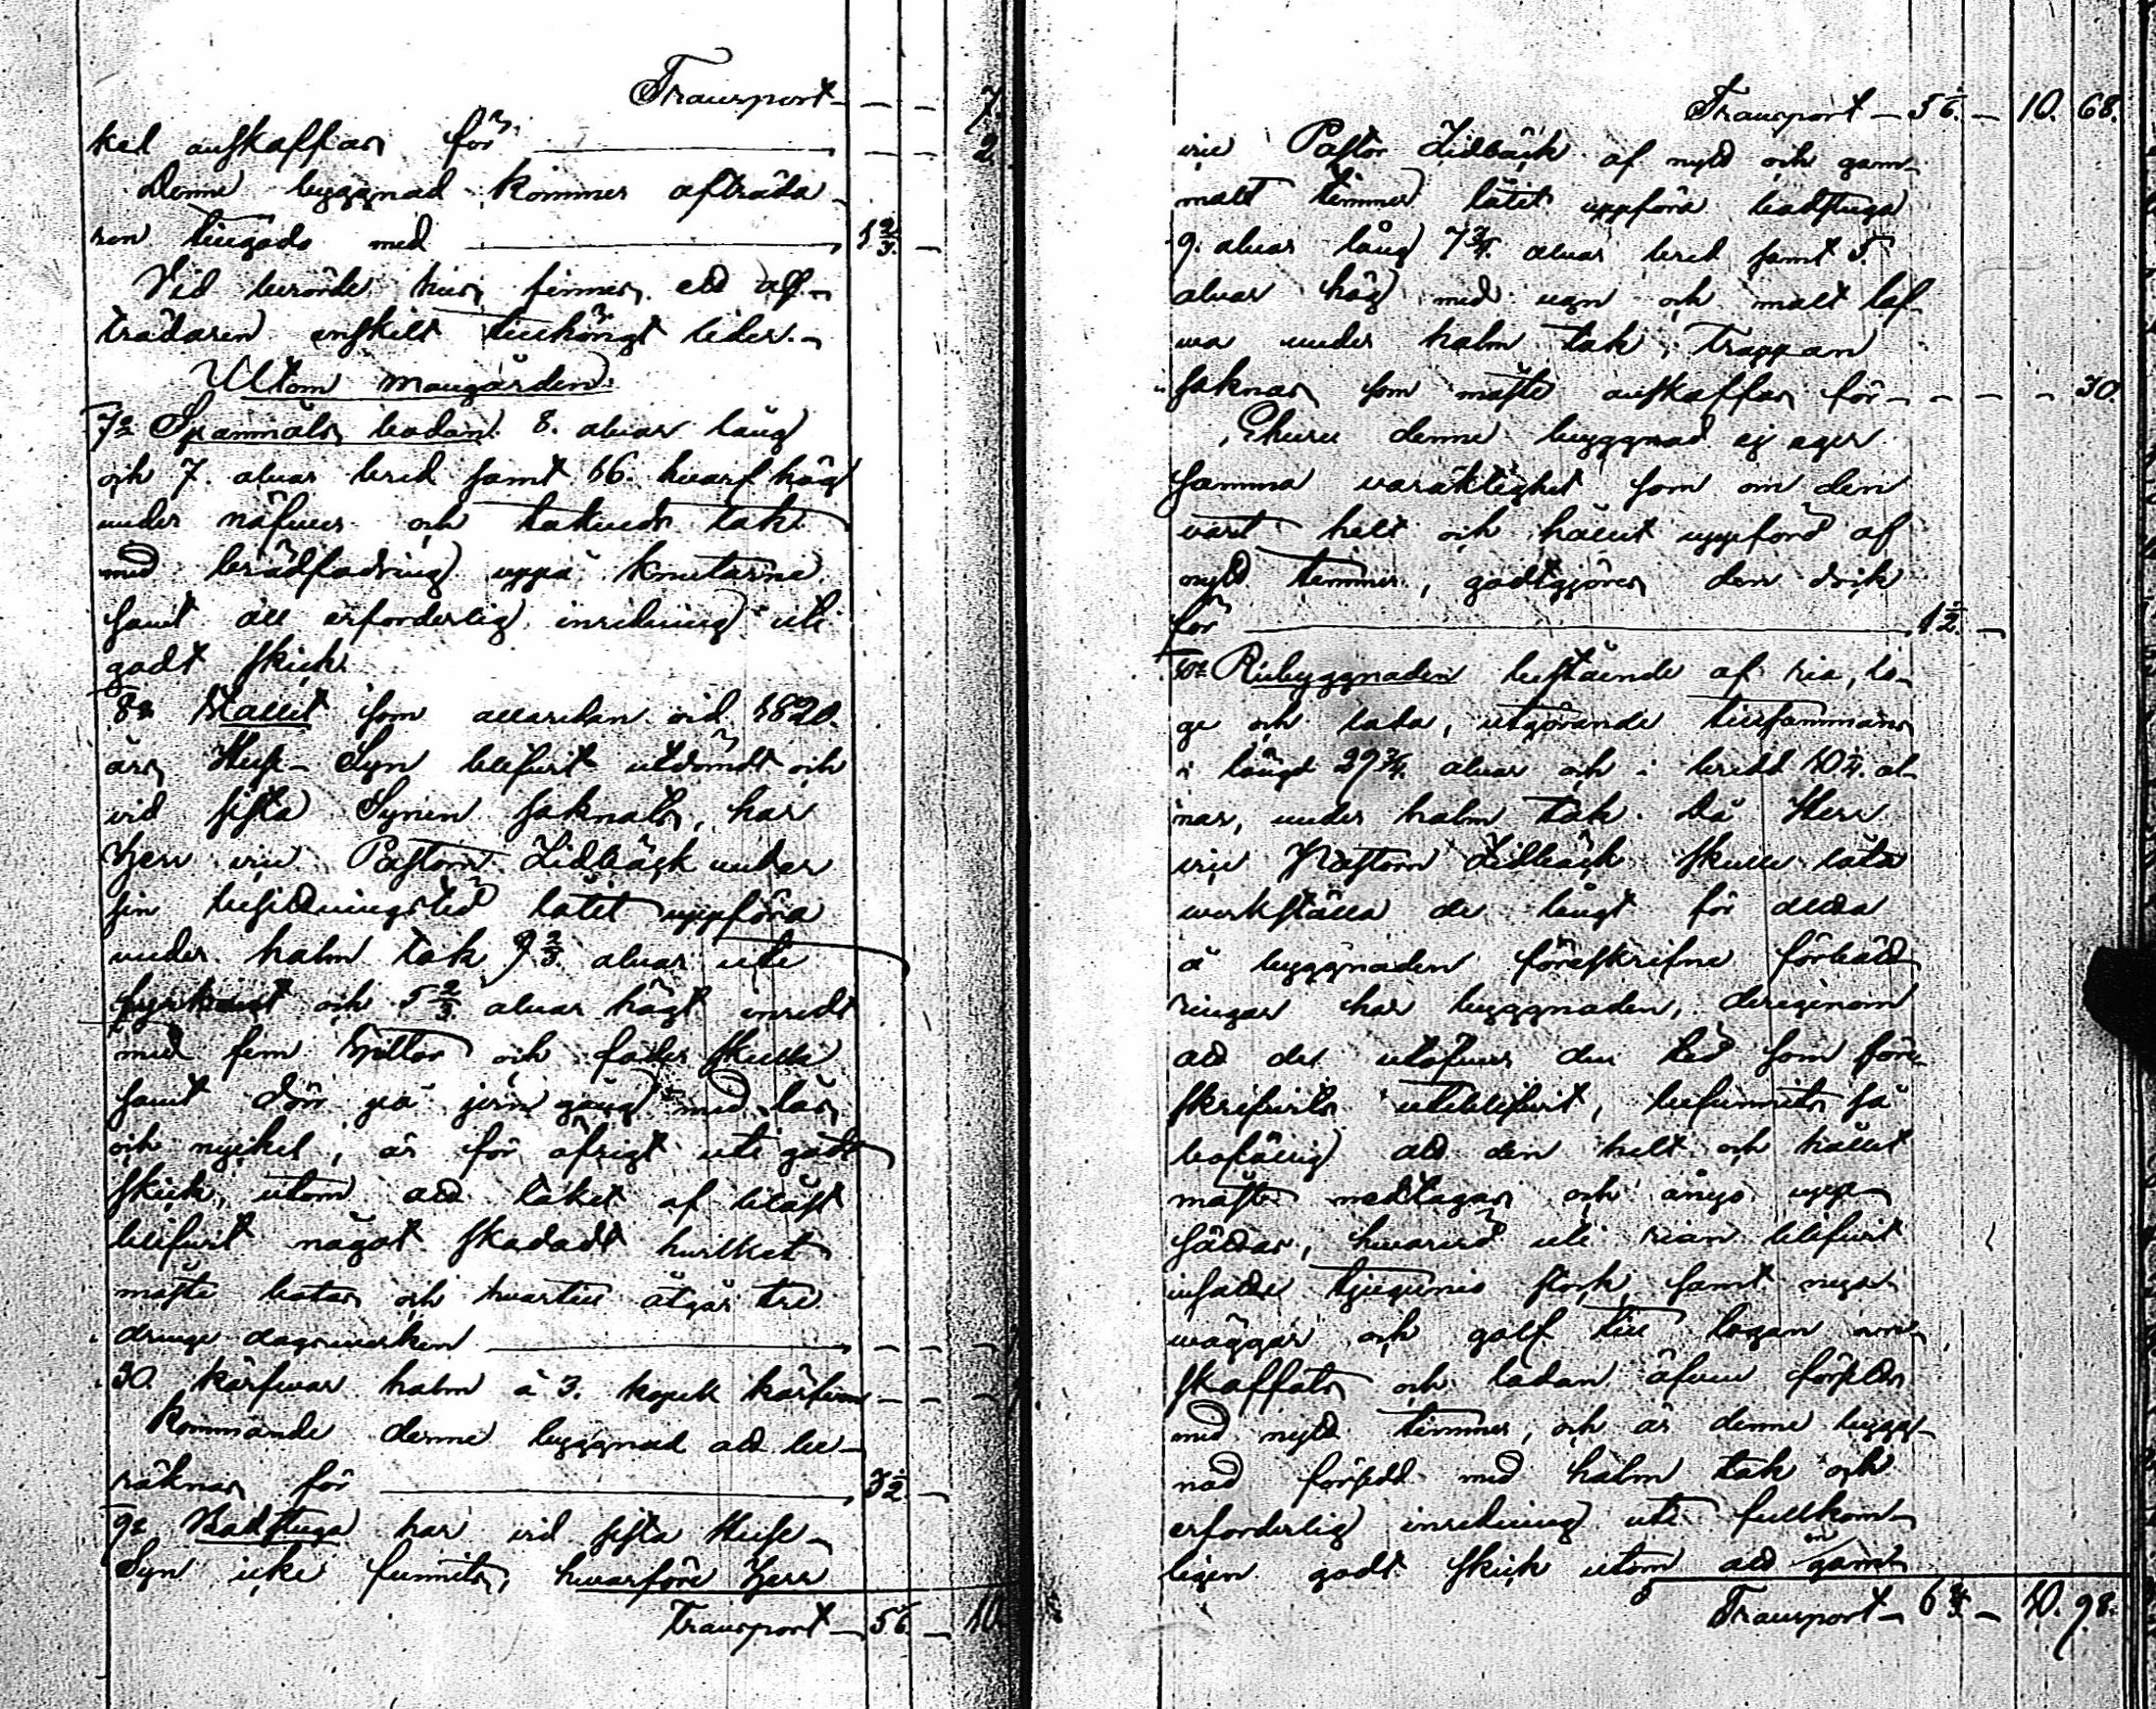 Transport — — — 7.
kel anskaffas för — — — 2.
Denne byggnad kommer afträda-
ren tillgodo med — 1 2/3. —
Vid berörde hus finnes ett af-
trädaren enskilt tillhörigt lider. —
Utom mangården.
7o Spannmåls bodan 8. alnar lång
och 7. alnar bred samt 16. hvarf hög
under näfver och takveds tak
med brädfodring uppå knutarne
samt all erforderlig inredning uti
godt skick.
8o Stallet som allaredan vid 1820
års Huse-Syn blifvit utdömdt och
vid sista Synen saknats, har
Herr vice Pastorn Lidbäck under
sin besittningstid låtit uppföra
under halm tak 9 2/3. alnar uti
fyrkant och 5 2/3. alnar högt inredt
med fem spiltor och foder skulle
samt dörr på jern gång med lås
och nyckel, är för öfrigt uti godt
skick, utom att taket af blåst
blifvit något skadadt hvilket
måste botas och hvartill åtgår tre
drenge dagsverken — — —
30. kärfvar halm à 3. kopek kärfven — — —
Kommande denne byggnad att be-
räknas för — 3 1/2 —
9o Badstuga har vid sista Huse-
Syn icke funnits, hvarföre Herr
Transport — 5 1/6. — 10.
Transport — 5 1/6. — 10. 68.
vice Pastor Lidbäck af nytt och gam-
malt timmer låtit uppföra badstuga
9. alnar lång 7 3/4. alnar bred samt 5.
alnar hög med ugn och malt laf-
va under halm tak, Trappan
saknas som måste anskaffas för — — — — 30.
Ehuru denne byggnad ej ager
samma varaktighet som om den
varit helt och hållit uppförd af
nytt timmer, godtgjöres den dock
för — 1 1/2. —
10o Riebyggnaden bestående af ria, lo-
ge och lada, utgörande tillsammans
i längd 29 3/4. alnar och i bredd 10 1/4. al-
nar, under halm tak. Då Herr
vice Pastorn Lidbäck skulle låta
verkställa de långt för detta
å byggnaden föreskrifne förbätt-
ringar har byggnaden, derigenom
att det utöfver den tid som före
skrifvits uteblifvit, befunnits så
bofällig att den helt och hållit
måste nedtagas och ånyo upp
sättas, hvarvid uti rian blifvit
insatte tjugunio stock samt nya
väggar och golf till logan an-
skaffats och ladan äfven försetts
med nytt timmer, och är denne bygg-
nad försedd med halm tak och
erforderlig inredning uti fullkom-
ligen godt skick utom att en gaml
Transport — 6 2/3. — 10. 98.